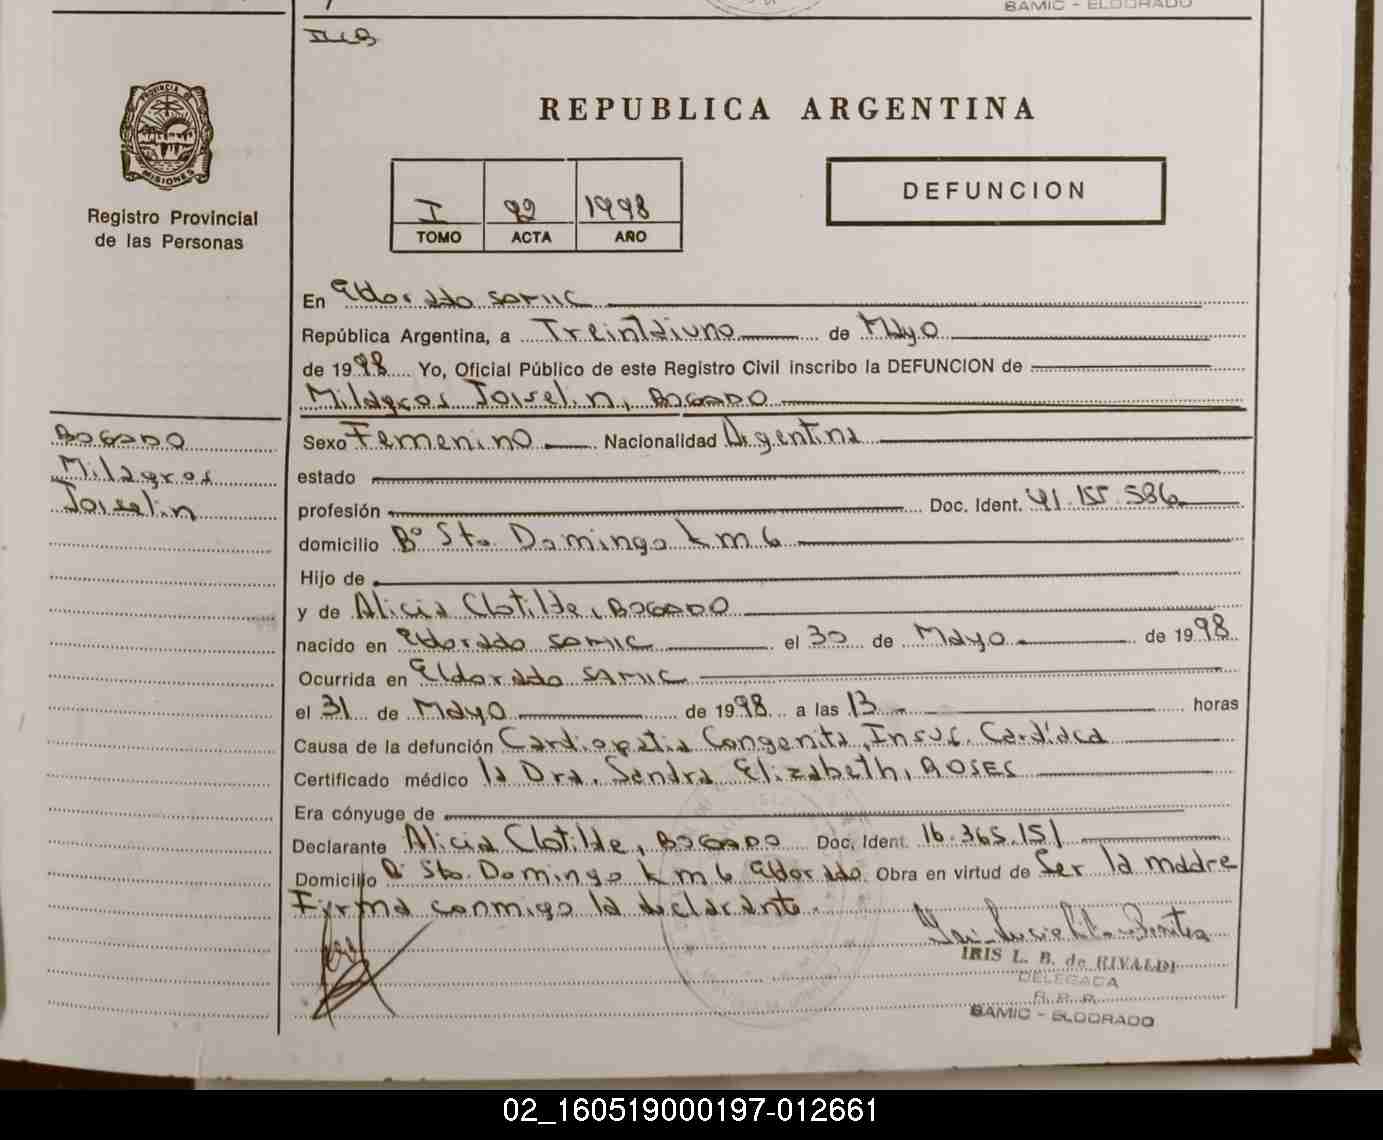 SAMIC - ELDORADO
ILB
REPUBLICA ARGENTINA
PROVINCIA DE
MISIONES
Registro Provincial
de las Personas
I 92 1998
TOMO ACTA AÑO
DEFUNCION
En Eldorado SAMIC
República Argentina, a Treintaiuno de Mayo
de 1998 Yo, Oficial Público de este Registro Civil inscribo la DEFUNCION de
Milagros Joiselin, BOGADO
BOGADO
Milagros
Joiselin
Sexo Femenino Nacionalidad Argentina
estado
profesión Doc. Ident. 41.155.586
domicilio Bº Sto. Domingo km 6
Hijo de
y de Alicia Clotilde, BOGADO
nacido en Eldorado SAMIC el 30 de Mayo de 1998
Ocurrida en Eldorado SAMIC
el 31 de Mayo de 1998 a las 13 horas
Causa de la defunción Cardiopatia Congenita, Insuf. Cardíaca
Certificado médico la Dra. Sandra Elizabeth, ROSES
Era cónyuge de
Declarante Alicia Clotilde, BOGADO Doc. Ident. 16.365.151
Domicilio Bº Sto. Domingo km 6 Eldorado Obra en virtud de Ser la madre
Firma conmigo la declarante.
IRIS L. B. de RIVALDI
DELEGADA
R. P. P.
SAMIC - ELDORADO
02_160519000197-012661